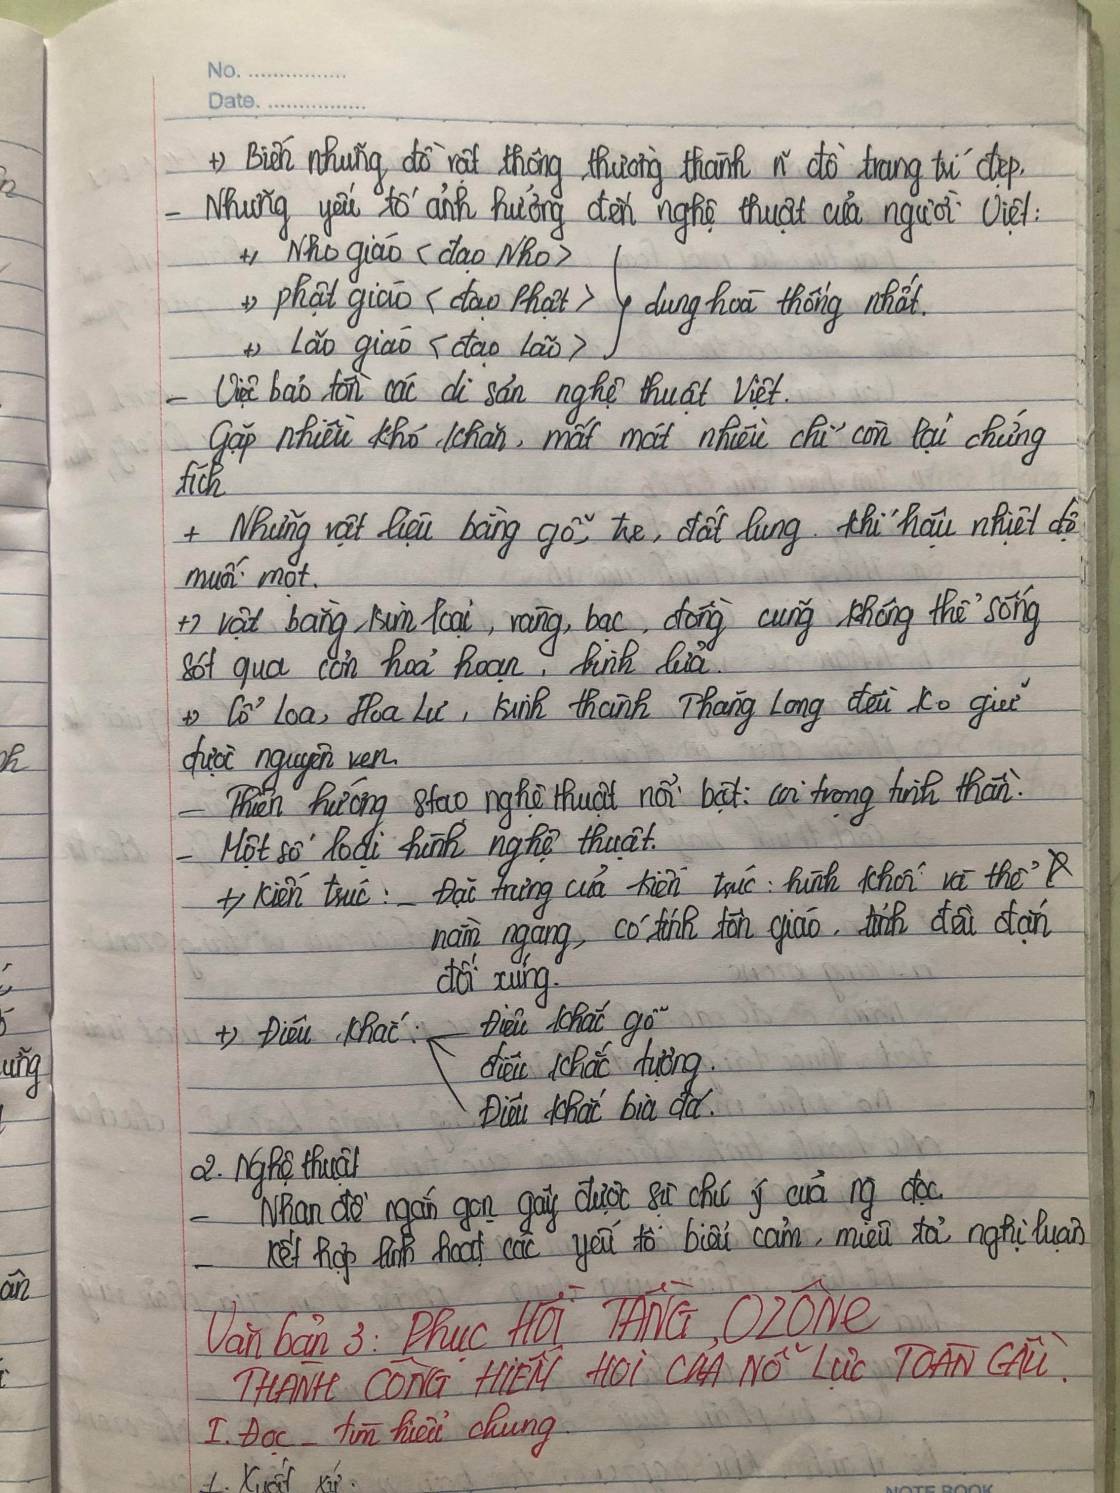 No. ................
Date. ................
+) Biến những đồ vật thông thường thành n~ đồ trang trí đẹp.
- Những yếu tố ảnh hưởng đến nghệ thuật của người Việt:
+) Nho giáo <đạo Nho>
+) phật giáo <đạo Phật> } dung hoà thống nhất.
+) Lão giáo <đạo Lão>
- Việc bảo tồn các di sản nghệ thuật Việt.
Gặp nhiều khó khăn, mất mát nhiều chỉ còn lại chứng
tích
+ Những vật liệu bằng gỗ, tre, đất lung. khí hậu nhiệt độ
muối mọt.
+) vật bằng kim loại, vàng, bạc, đồng cũng không thể sống
sót qua cơn hoả hoạn, binh lửa.
+) Cổ Loa, Hoa Lư, kinh thành Thăng Long đều ko giữ
được nguyên vẹn.
- Thiên hướng stạo nghệ thuật nổi bật: coi trọng tinh thần.
- Một số loại hình nghệ thuật.
+) Kiến trúc: - Đặc trưng của kiến trúc: hình khối và thể
nằm ngang, có tính tôn giáo, tính đều đặn
đối xứng.
+) Điêu khắc: - Điêu khắc gỗ
điêu khắc tượng.
Điêu khắc bia đá.
2. Nghệ thuật
- Nhan đề ngắn gọn gây được sự chú ý của ng đọc.
- Kết hợp linh hoạt các yếu tố biểu cảm, miêu tả, nghị luận
Văn bản 3: Phục HỒI TẦNG OZÔNE
THÀNH CÔNG HIẾM HOI CỦA NỖ LỰC TOÀN CẦU.
I. Đọc - tìm hiểu chung.
1. Xuất xứ:
NOTE BOOK